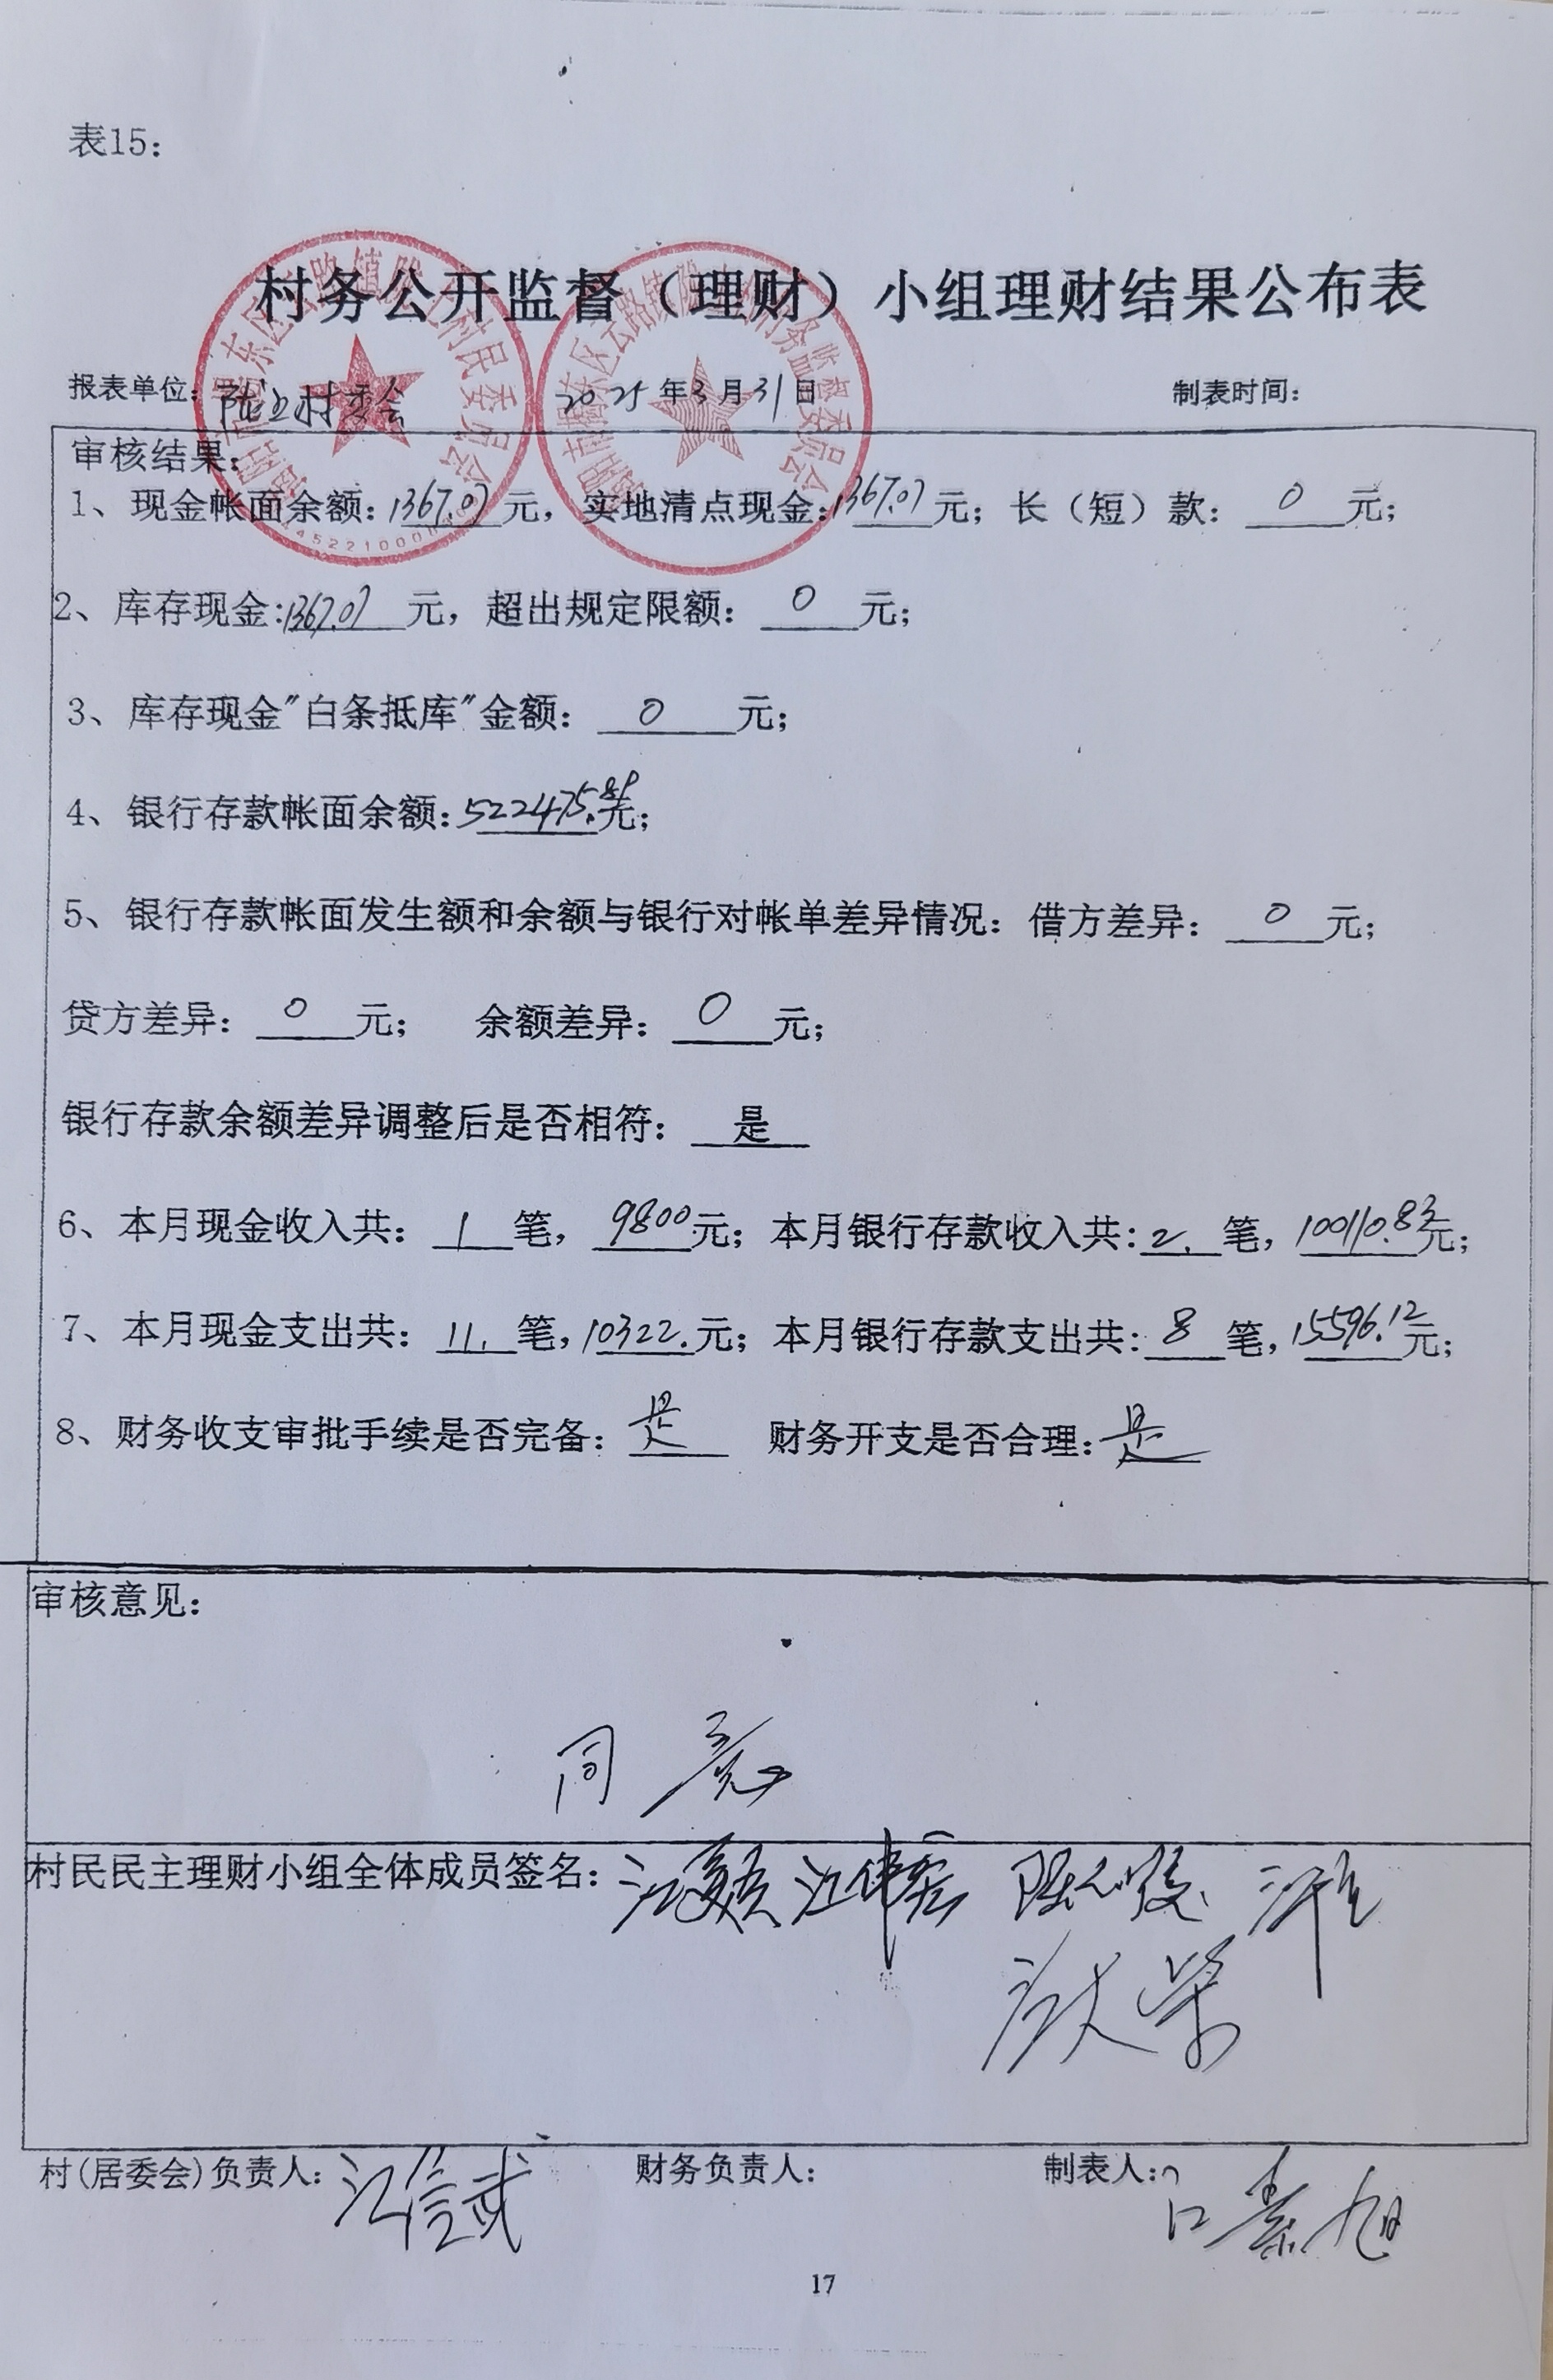 表15:
村务公开监督（理财）小组理财结果公布表
报表单位: 陇上村委会 2025年3月31日 制表时间:
审核结果:
1、现金帐面余额:1367.07元, 实地清点现金:1367.07元; 长（短）款: 0 元;
2、库存现金:1367.07元, 超出规定限额: 0 元;
3、库存现金"白条抵库"金额: 0 元;
4、银行存款帐面余额:522475.元;
5、银行存款帐面发生额和余额与银行对帐单差异情况: 借方差异: 0 元;
贷方差异: 0 元; 余额差异: 0 元;
银行存款余额差异调整后是否相符: 是
6、本月现金收入共: 1 笔, 9800元; 本月银行存款收入共:2. 笔, 100110.83元;
7、本月现金支出共: 11. 笔,10322.元; 本月银行存款支出共: 8 笔, 15596.12元;
8、财务收支审批手续是否完备: 是 财务开支是否合理:是
审核意见:
同意
村民民主理财小组全体成员签名: 江伟宏
村(居委会)负责人: 江信武 财务负责人: 制表人: 江素旭
17